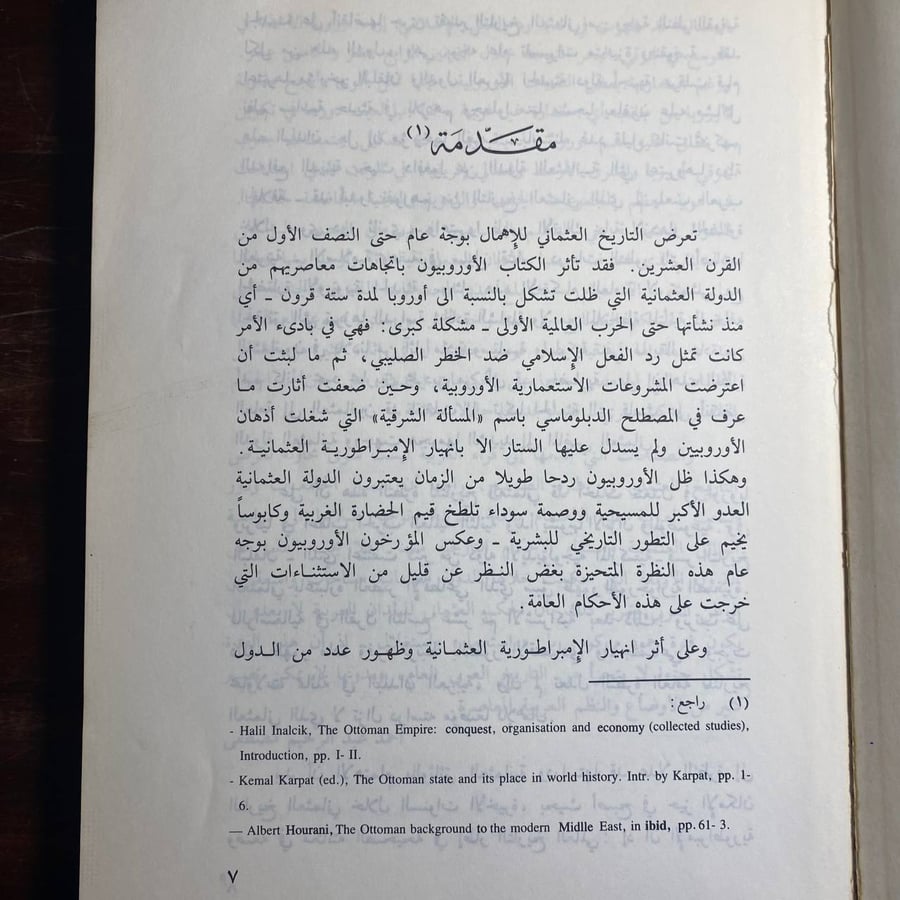 مقدّمَة (١)
تعرض التاريخ العثماني للإهمال بوجة عام حتى النصف الأول من
القرن العشرين. فقد تأثر الكتاب الأوروبيون باتجاهات معاصريهم من
الدولة العثمانية التي ظلت تشكل بالنسبة الى أوروبا لمدة ستة قرون ـ أي
منذ نشأتها حتى الحرب العالمية الأولى ـ مشكلة كبرى: فهي في بادىء الأمر
كانت تمثل رد الفعل الإسلامي ضد الخطر الصليبي، ثم ما لبثت أن
اعترضت المشروعات الاستعمارية الأوروبية، وحين ضعفت أثارت ما
عرف في المصطلح الدبلوماسي باسم «المسألة الشرقية» التي شغلت أذهان
الأوروبيين ولم يسدل عليها الستار الا بانهيار الإمبراطورية العثمانية.
وهكذا ظل الأوروبيون ردحا طويلا من الزمان يعتبرون الدولة العثمانية
العدو الأكبر للمسيحية ووصمة سوداء تلطخ قيم الحضارة الغربية وكابوساً
يخيم على التطور التاريخي للبشرية ـ وعكس المؤرخون الأوروبيون بوجه
عام هذه النظرة المتحيزة بغض النظر عن قليل من الاستثناءات التي
خرجت على هذه الأحكام العامة.
وعلى أثر انهيار الإمبراطورية العثمانية وظهور عدد من الدول
(١) راجع:
- Halil Inalcik, The Ottoman Empire: conquest, organisation and economy (collected studies),
Introduction, pp. I- II.
- Kemal Karpat (ed.), The Ottoman state and its place in world history. Intr. by Karpat, pp. 1-
6.
— Albert Hourani, The Ottoman background to the modern Midlle East, in ibid, pp. 61- 3.
٧